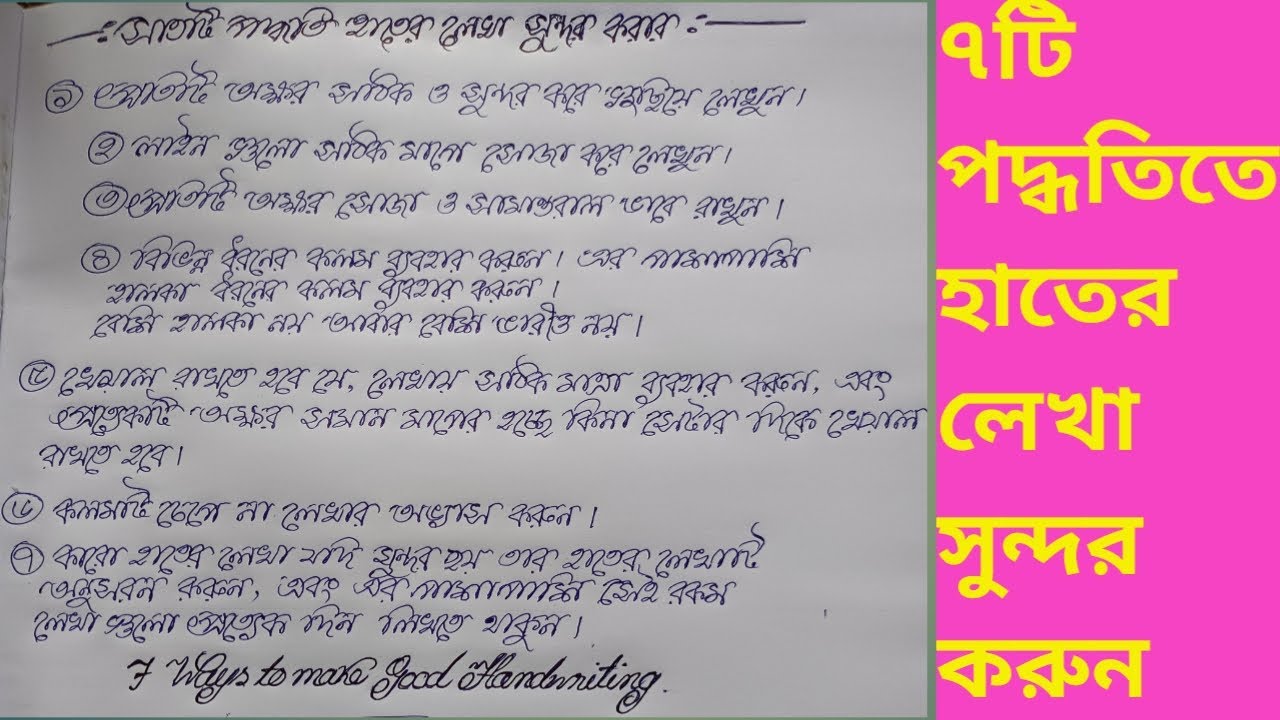 —: সাতটি পদ্ধতি হাতের লেখা সুন্দর করার :—
১ প্রতিটি অক্ষর সঠিক ও সুন্দর করে লেখুন।
২ লাইন গুলো সঠিক মাপে সোজা করে লেখুন।
৩ প্রতিটি অক্ষর সোজা ও সামান্তরাল ভাবে রাখুন।
৪ বিভিন্ন ধরনের কলম ব্যবহার করুন। এর পাশাপাশি
হালকা ধরনের কলম ব্যবহার করুন।
বেশি হালকা নয় আবার বেশি ভারীও নয়।
৫ খেয়াল রাখতে হবে যে, লেখায় সঠিক মাত্রা ব্যবহার করুন, এবং
প্রত্যেকটি অক্ষর সমান মাপের হচ্ছে কিনা সেটার দিকে খেয়াল
রাখতে হবে।
৬ কলমটি চেপে না লেখার অভ্যাস করুন।
৭ কারো হাতের লেখা যদি সুন্দর হয় তার হাতের লেখাটি
অনুসরন করুন, এবং এর পাশাপাশি সেই রকম
লেখা গুলো প্রত্যেক দিন লিখতে থাকুন।
7 Ways to make Good Handwriting.
৭টি
পদ্ধতিতে
হাতের
লেখা
সুন্দর
করুন